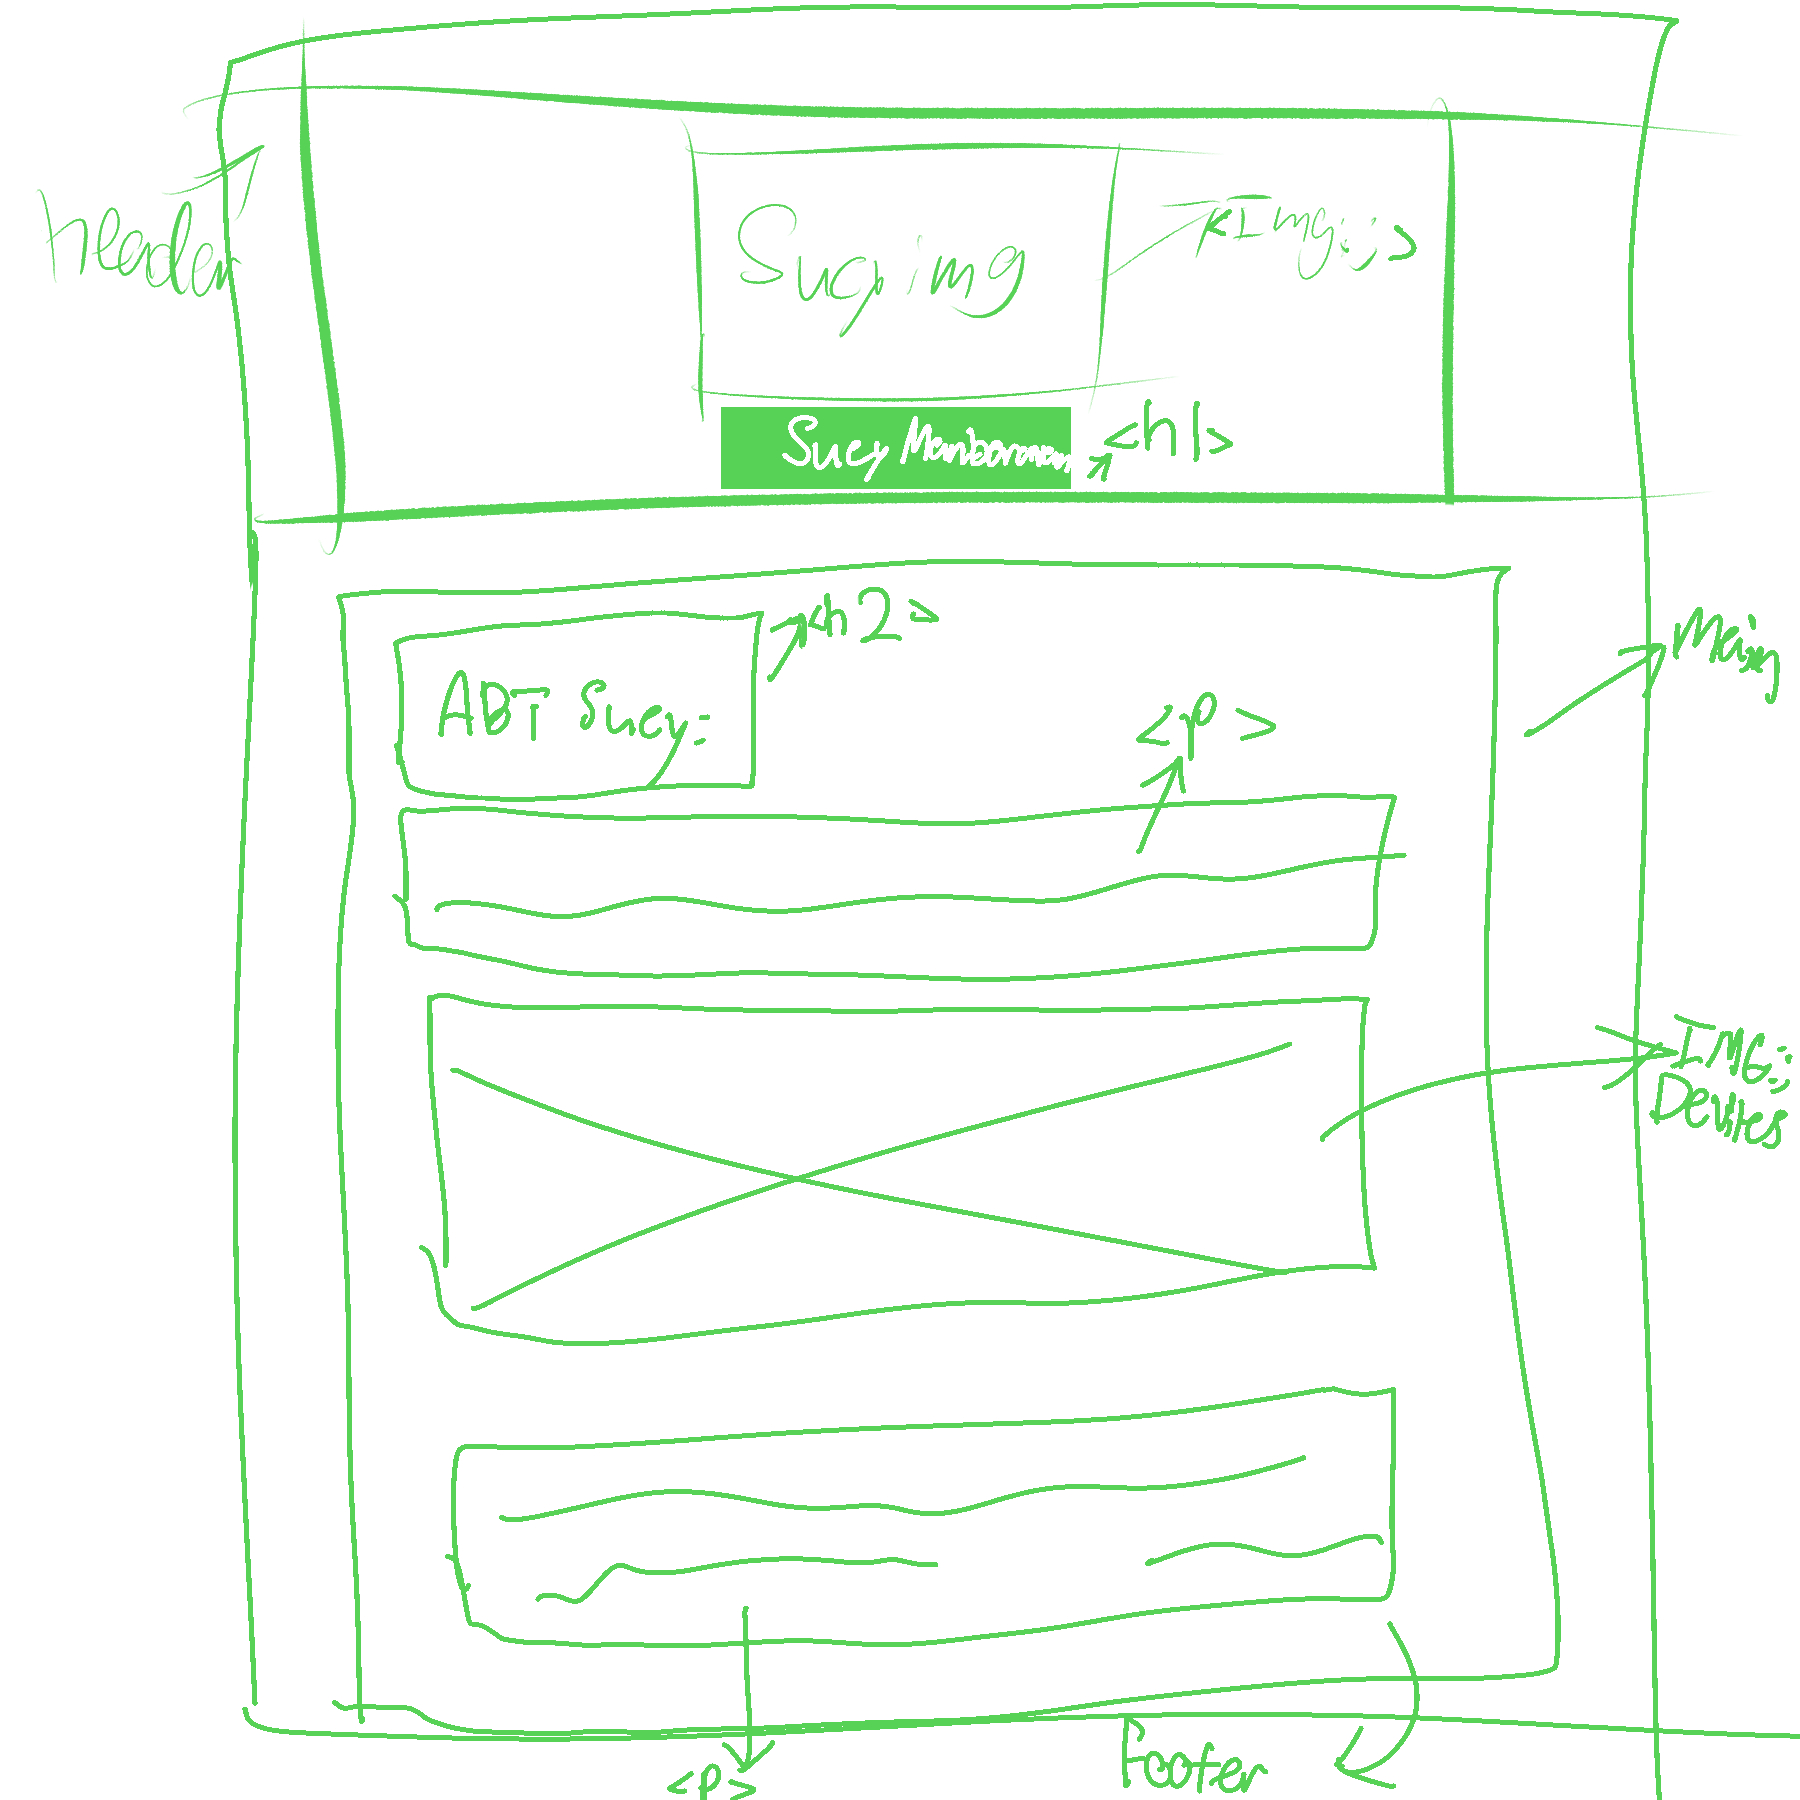 header
Sucy img
<Img>
Sucy Manbavaran
<h1>
ABT Sucy:
<h2>
Main
<p>
IMG:
Devites
<p>
Footer